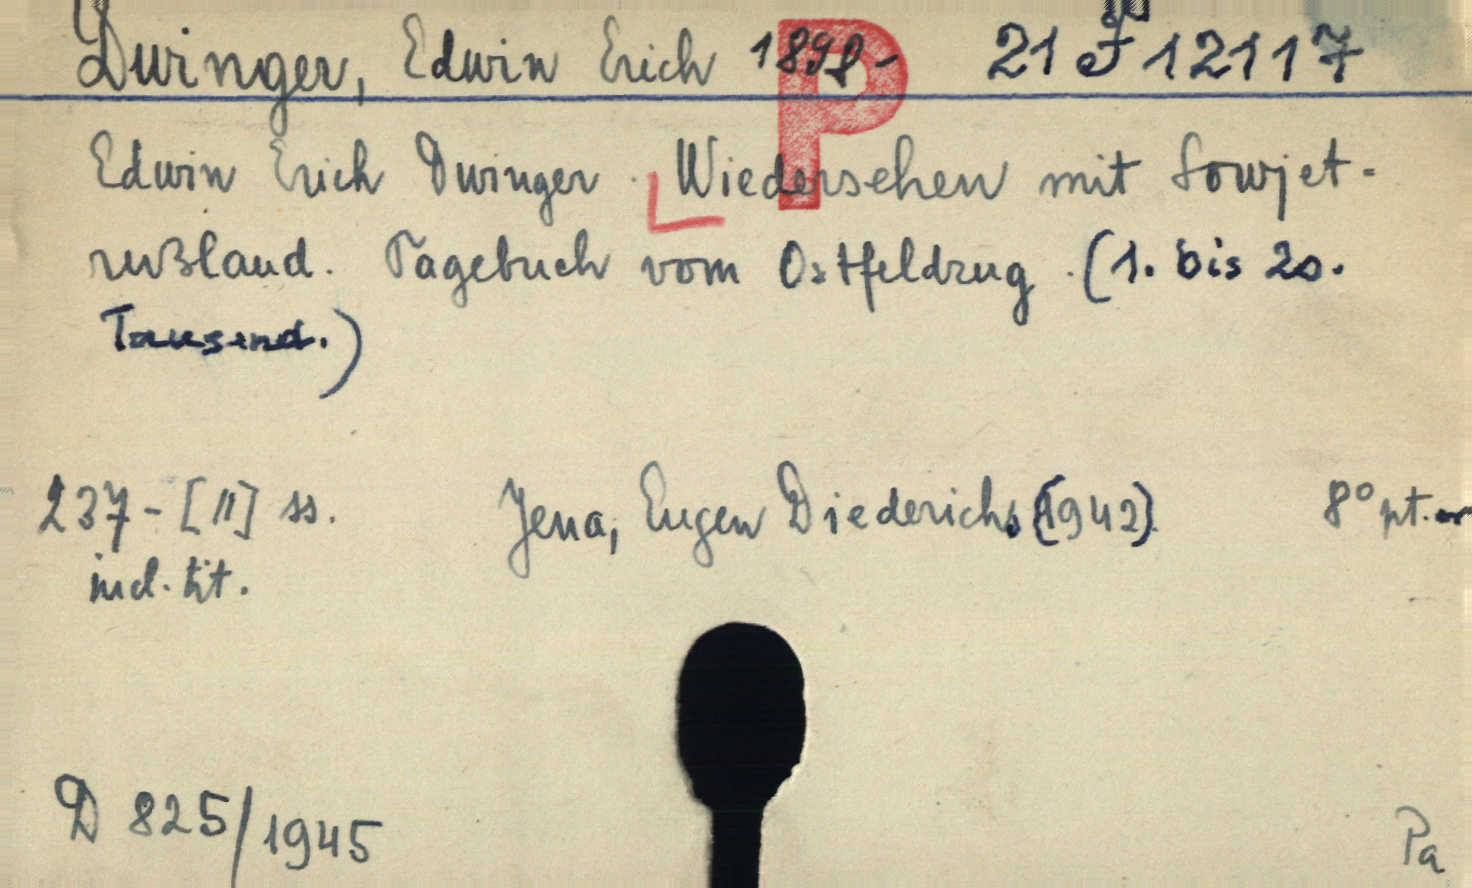 Dwinger, Edwin Erich 1898- 21 J 12117
P
Edwin Erich Dwinger. Wiedersehen mit Sowjet-
rußland. Tagebuch vom Ostfeldzug. (1. bis 20.
Tausend.)
237-[II] ss. Jena, Eugen Diederichs (1942) 8° pt.
incl. tit.
D 825/1945
Pa